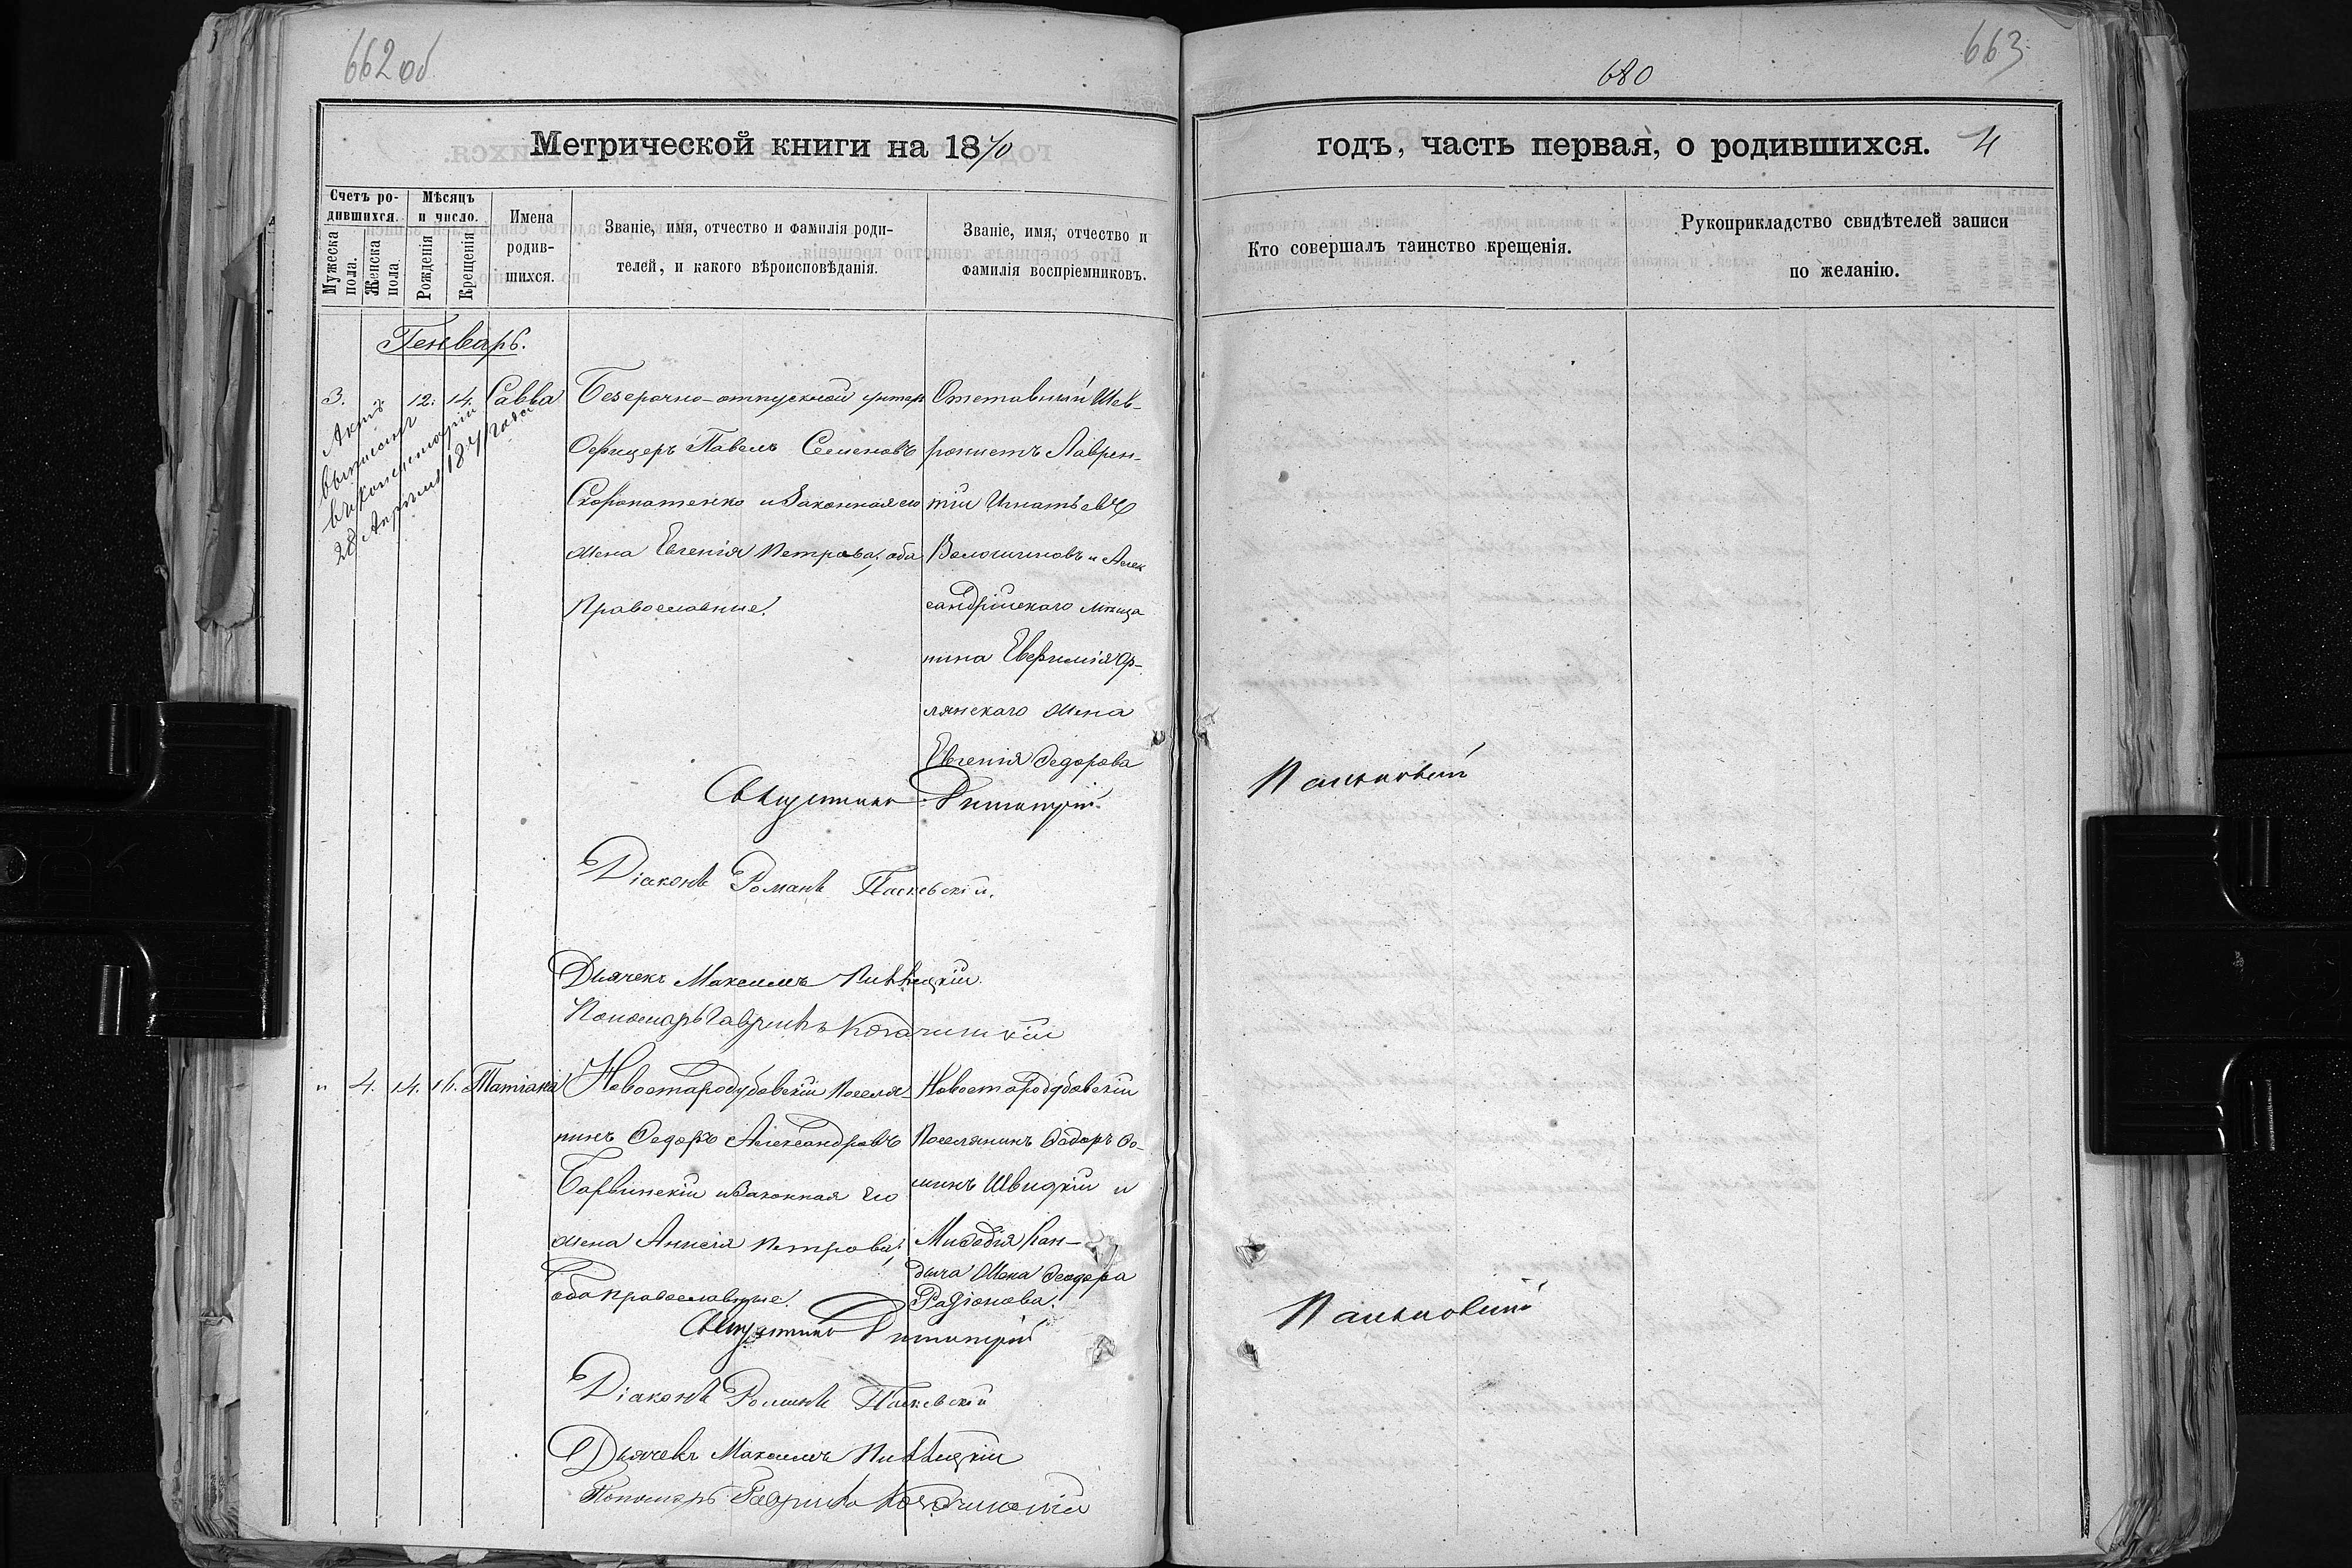 662 об
680
663
Метрической книги на 1870
годъ, часть первая, о родившихся. 4
Счетъ родившихся.
Мужеска пола.
Женска пола.
Мѣсяцъ и число.
Рожденія
Крещенія
Имена родившихся.
Званіе, имя, отчество и фамилія родителей, и какого вѣроисповѣданія.
Званіе, имя, отчество и фамилія воспріемниковъ.
Кто совершалъ таинство крещенія.
Рукоприкладство свидѣтелей записи по желанію.
Генварь.
3. 12. 14. Савва
Актъ
выписанъ
въ Консисторіи
28 Апрѣля 1871 года
Безсрочно-отпускной унтер
Офицеръ Павелъ Семеновъ
Скоропатенко и Законная его
жена Евгенія Петрова, оба
Православные.
Отставный
Лаврен-
тій Игнатьевъ
Волошиновъ и Алек
сандрійскаго мѣща
нина Евфимія Ор-
лянскаго жена
Евгенія Федорова
Священникъ Димитрій
Пальковый
Діаконъ Романъ Паскевскій.
Дьячекъ Максимъ
Пономарь Гавріилъ
" 4. 14. 16. Татіана
Новостародубовскій поселя-
нинъ Федоръ Александровъ
Барвинскій и Законная его
жена Анисія Петрова,
оба православные.
Новостародубовскій
Поселянинъ Федоръ Фо-
минъ Швидкій и
жена Феодора
Радіонова.
Священникъ Димитрій
Пальковый
Діаконъ Романъ Паскевскій
Дьячекъ Максимъ
Пономарь Гавріилъ